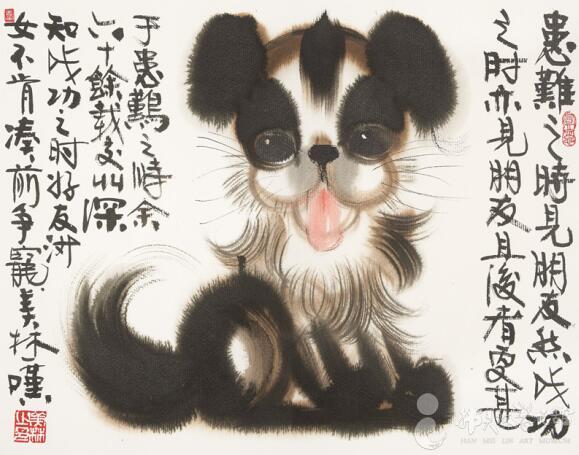 患難之時見朋友然成功
之時亦見朋友且後者更甚
于患難之時余
六十餘載交以深
知成功之時好友
女不肯湊前争寵美林嘆
HAN MEI LIN ART MUSEUM